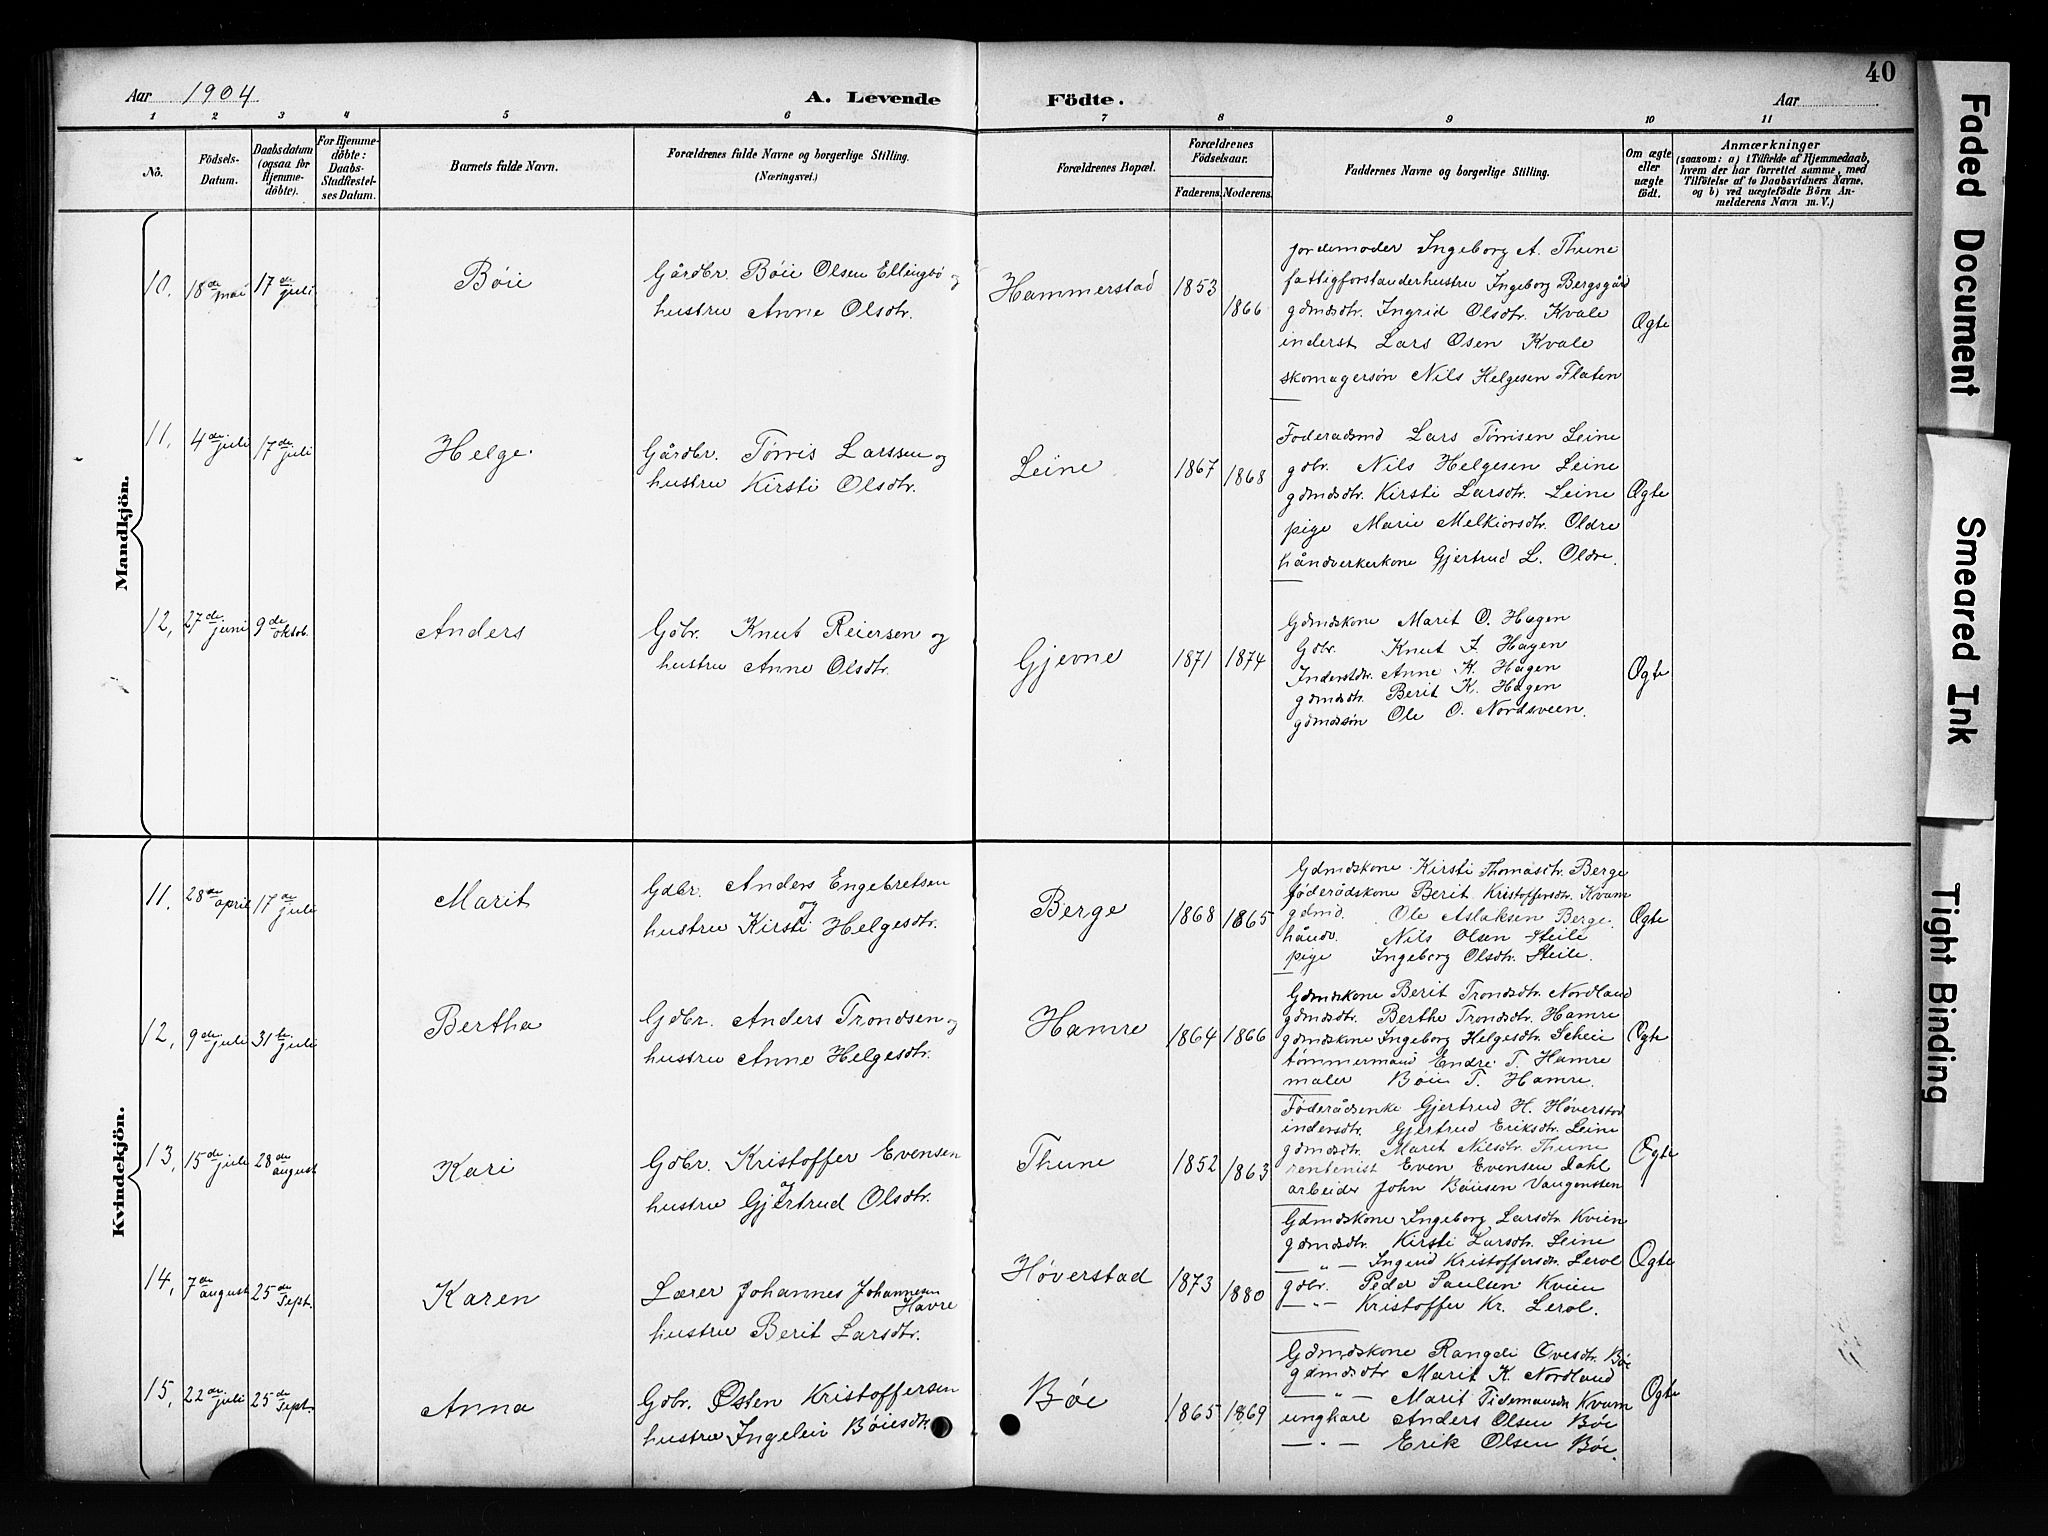 40
Aar 1904
A. Levende Födte.
Aar
1 2 3 4 5 6 7 8 9 10 11
Nö.
Födsels-Datum.
Daabsdatum (ogsaa for Hjemme-döbte).
For Hjemme-döbte: Daabs-Stadfæstel-ses Datum.
Barnets fulde Navn.
Forældrenes fulde Navne og borgerlige Stilling. (Næringsvei.)
Forældrenes Bopæl.
Forældrenes Födselsaar.
Faderens. Moderens.
Faddernes Navne og borgerlige Stilling.
Om ægte eller uægte födt.
Anmærkninger
(saasom: a) i Tilfælde af Hjemmedaab,
hvem der har forrettet samme, med
Tilföielse af to Daabsvidners Navne,
og b) ved uægtefödte Börn An-
melderens Navn m. V.)
Mandkjön.
10. 18de mai 17de juli Bøie
Gårdbr. Bøie Olsen Ellingbø og
hustru Anne Olsdtr.
Hammerstad 1853 1866
jordemoder Ingeborg A. Thune
fattigforstanderhustru Ingeborg Bergsgård
gdmdsdtr. Ingrid Olsdtr. Kvale
inderst Lars Osen Kvale
skomagersøn Nils Helgesen Flaten
Ægte
11. 4de juli 17de juli Helge.
Gårdbr. Tørris Larssen og
hustru Kirsti Olsdtr.
Leine 1867 1868
Foderadsmd Lars Tørrisen Leine
gdbr. Nils Helgesen Leine
gdmdsdtr. Kirsti Larsdtr. Leine
pige Marie Melkiorsdtr. Oldre
håndverkerkone Gjertrud L. Oldre.
Ægte
12. 27de juni 9de oktob. Anders
Gdbr. Knut Reiersen og
hustru Anne Olsdtr.
Gjevne 1871 1874
Gdmdskone Marit O. Hagen
Gdbr. Knut I. Hagen
Inderstdtr. Anne K. Hagen
gdmdsdtr. Berit K. Hagen
gdmdssøn Ole O. Nordsveen.
Ægte
Kvindekjön.
11. 28de april 17de juli Marit
Gdbr. Anders Engebretsen
og
hustru Kirsti Helgesdtr.
Berge 1868 1865
Gdmdskone Kirsti Thomasdtr. Berge
føderådskone Berit Kristoffersdtr. Kvam
gdmd. Ole Aslaksen Berge.
håndv. Nils Olsen Steile
pige Ingeborg Olsdtr. Steile.
Ægte
12. 9de juli 31te juli Bertha
Gdbr. Anders Trondsen og
hustru Anne Helgesdtr.
Hamre 1864 1866
Gdmdskone Berit Trondsdtr. Nordland
gdmdsdtr. Berthe Trondsdtr. Hamre
gdmdskone Ingeborg Helgesdtr. Scheie
tømmermand Endre T. Hamre
maler Bøie T. Hamre.
Ægte
13. 15de juli 28de august Kari
Gdbr. Kristoffer Evensen
og
hustru Gjertrud Olsdtr.
Thune 1852 1863
Føderådsenke Gjertrud H. Høverstad
indersdtr. Gjertrud Eriksdtr. Leine
gdmdsdtr. Marit Nilsdtr. Thune
rentenist Even Evensen Dahl
arbeider John Bøiesen Vangensten
Ægte
14. 7de august 25de Sept. Karen
Lærer Johannes Johannesen
Havre
hustru Berit Larsdtr.
Høverstad 1873 1880
Gdmdskone Ingeborg Larsdtr. Kvien
gdmdsdtr. Kirsti Larsdtr. Leine
— " — Ingrid Kristoffersdtr. Lerol
gdbr. Peder Paulsen Kvien
— " — Kristoffer Kr. Lerol.
Ægte
15. 22de juli 25de Sept. Anna
Gdbr. Østen Kristoffersen
hustru Ingeleiv Bøiesdtr.
Bøe 1865 1869
Gdmdskone Rangdi Ovesdtr. Bøe
gdmdsdtr Marit K. Nordland
— " — Marit Tidemansdtr Kvam
ungkarl Anders Olsen Bøe
— " — Erik Olsen Bøe.
Ægte
Faded Document
Smeared Ink
Tight Binding